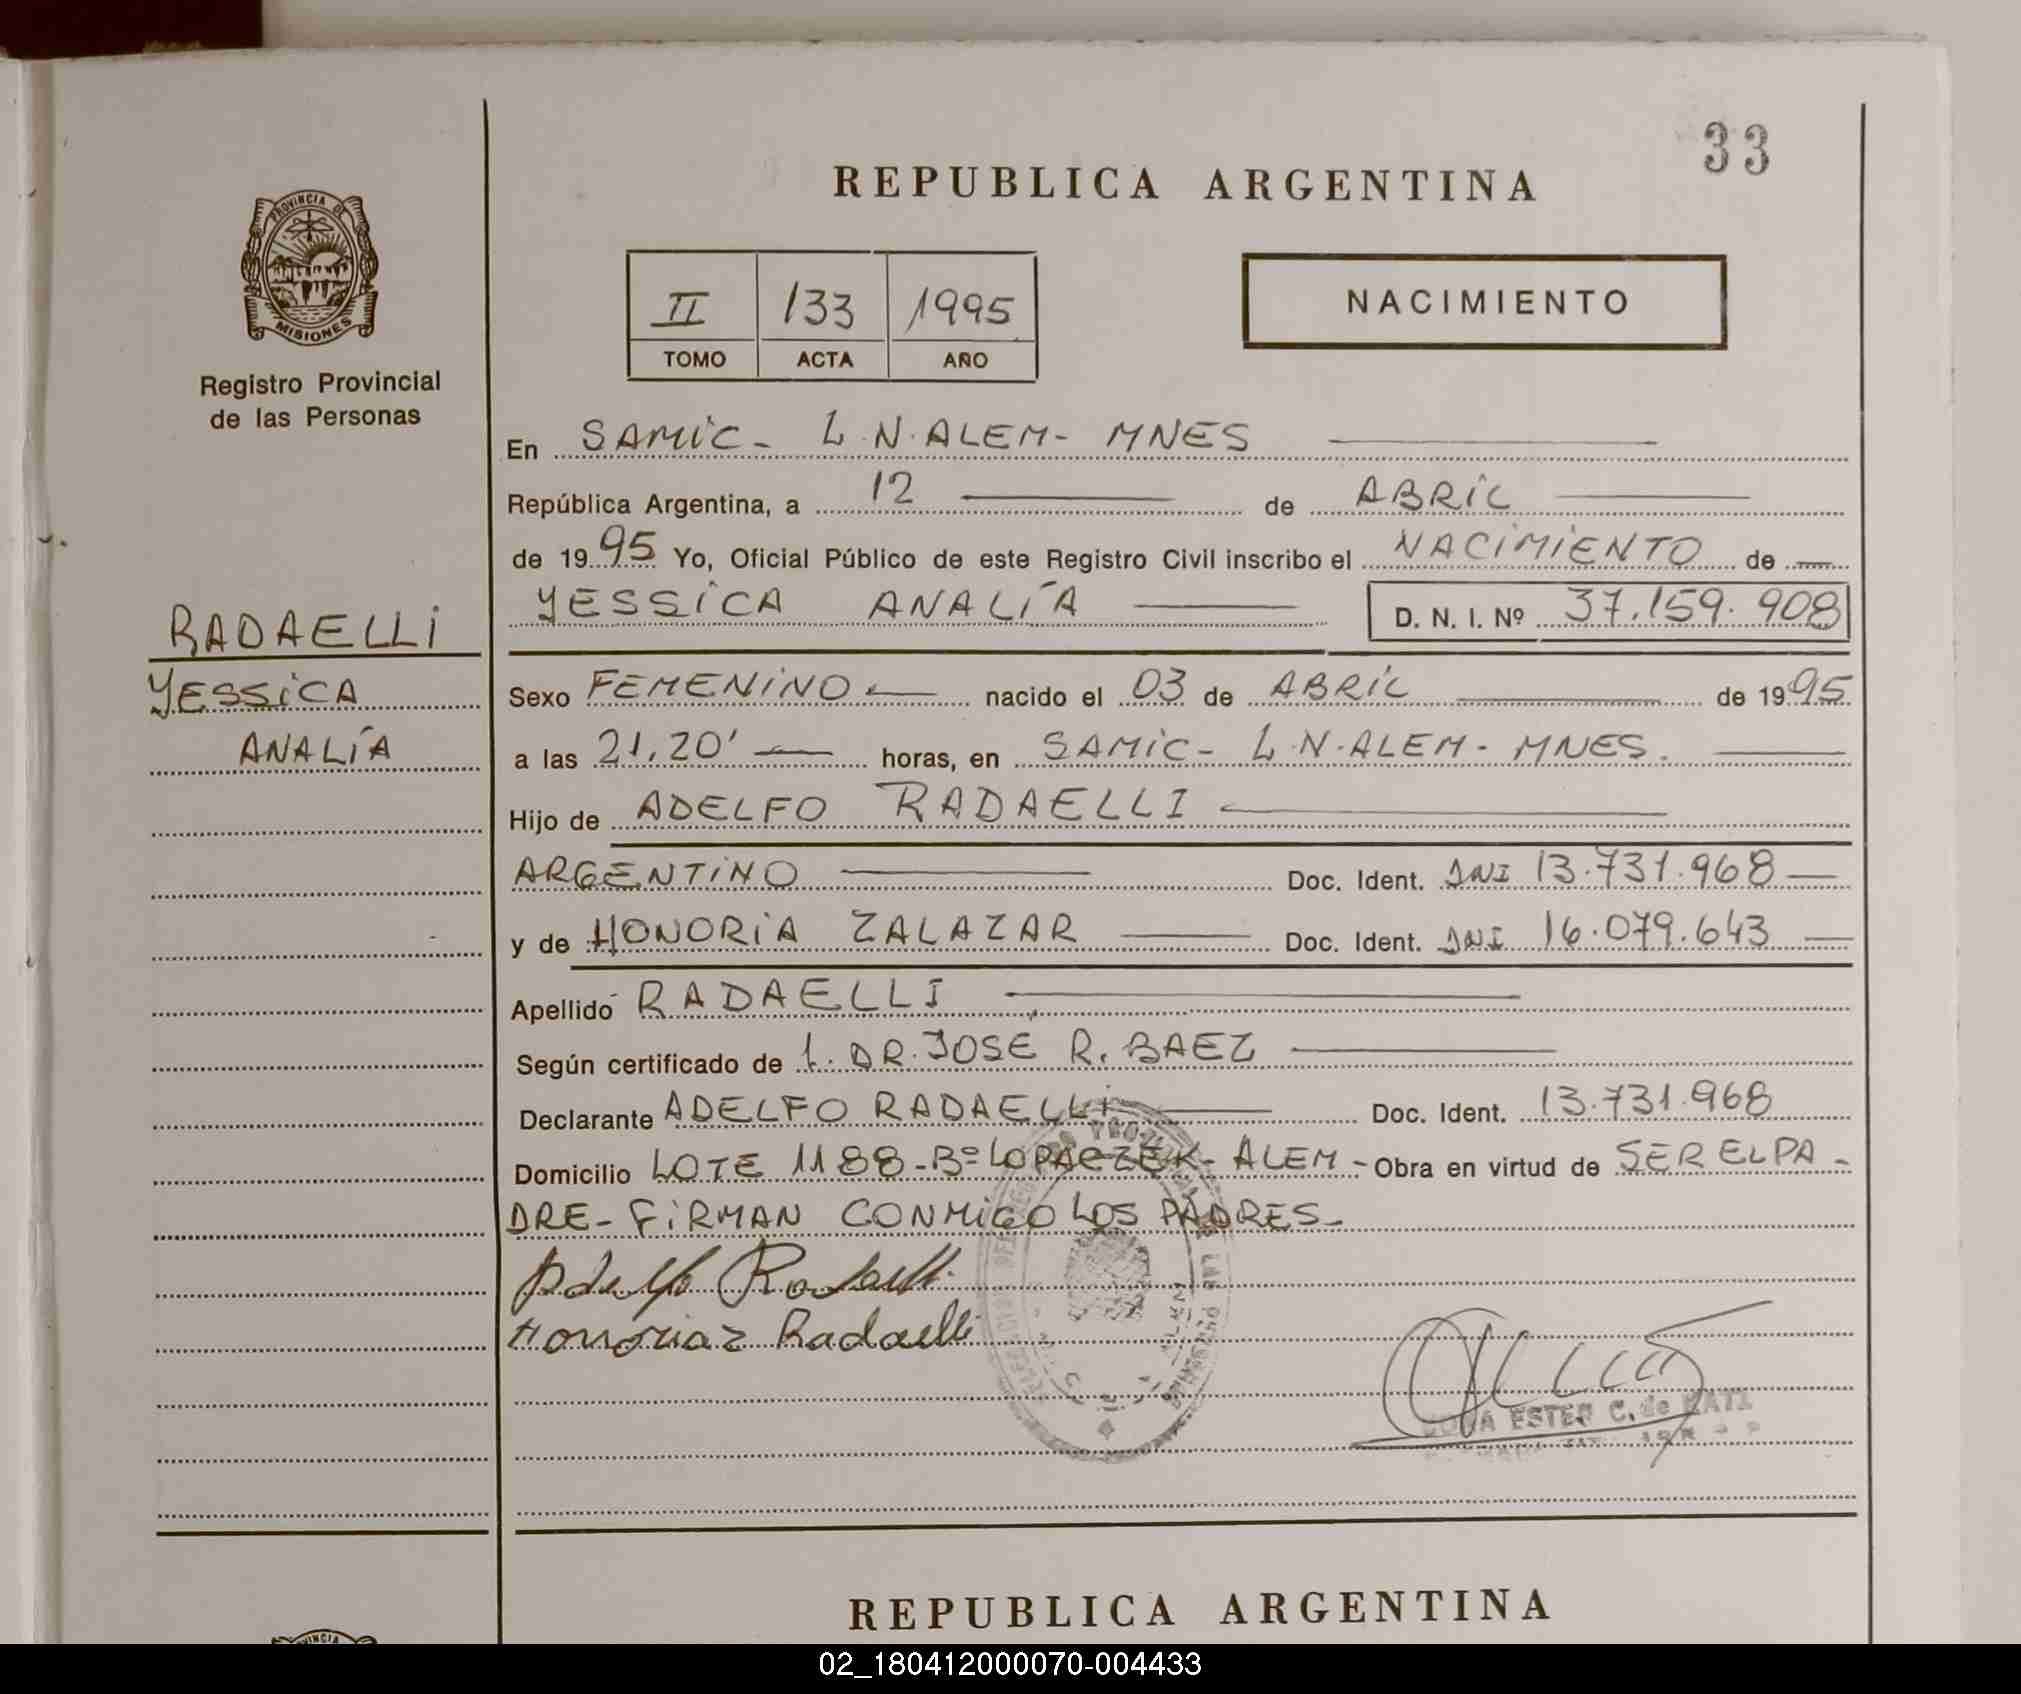 33
REPUBLICA ARGENTINA
PROVINCIA DE
MISIONES
Registro Provincial
de las Personas
II 133 1995
TOMO ACTA AÑO
NACIMIENTO
En SAMIC- L.N.ALEM- MNES
República Argentina, a 12 de ABRIL
de 1995 Yo, Oficial Público de este Registro Civil inscribo el NACIMIENTO de
YESSICA ANALÍA D. N. I. Nº 37.159.908
RADAELLI
YESSICA
ANALÍA
Sexo FEMENINO nacido el 03 de ABRIL de 1995
a las 21,20' horas, en SAMIC- L.N.ALEM- MNES.
Hijo de ADELFO RADAELLI
ARGENTINO Doc. Ident. DNI 13.731.968
y de HONORIA ZALAZAR Doc. Ident. DNI 16.079.643
Apellido RADAELLI
Según certificado de 1. DR. JOSÉ R. BAEZ
Declarante ADELFO RADAELLI Doc. Ident. 13.731.968
Domicilio LOTE 1188-Bº LOPACZEK- ALEM- Obra en virtud de SER EL PA-
DRE- FIRMAN CONMIGO LOS PADRES-
Adelfo Radaelli
Honoria Z Radaelli
ESTER C. de
REPUBLICA ARGENTINA
02_180412000070-004433